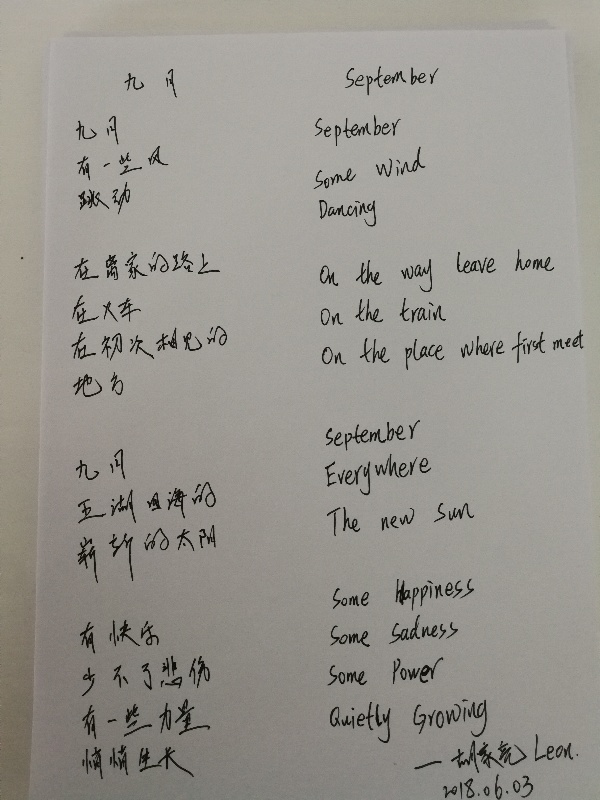 九月
九月
有一些风
跳动
在离家的路上
在火车
在初次相见的
地方
九月
五湖四海的
崭新的太阳
有快乐
少不了悲伤
有一些力量
悄悄生长
September
September
Some Wind
Dancing
On the way leave home
On the train
On the place where first meet
September
Everywhere
The new Sun
Some Happiness
Some Sadness
Some Power
Quietly Growing
—胡家 Leon.
2018.06.03